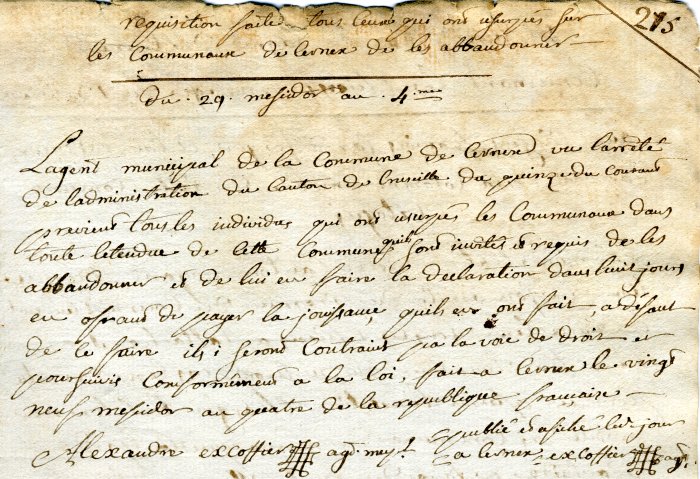 215
requisition faite tous ceux qui ont usurpés sur
les Communaux de Cernex de les abbandonner
du 29 mesidor an 4.me
Lagent municipal de la Commune de Cernex vu larreté
de ladministration du Canton de Cruseille du quinze du Courant
previens tous les individus qui ont usurpés les Communaux dans
toute letendue de cette Commune quils sont invités et requis de les
abbandonner et de lui en faire la declaration dans huit jours
en ofrant de payer la jouissance quils en ont fait, a defaut
de le faire ils seront Contraint pa la voie de droit et
poursuivis Conformement a la loi, fait a Cernex le vingt
neuf mesidor an quatre de la republique francaise
Alexandre excoffier agt. mpl.
publié et afiché led. jour
a Cernex excoffier agt.